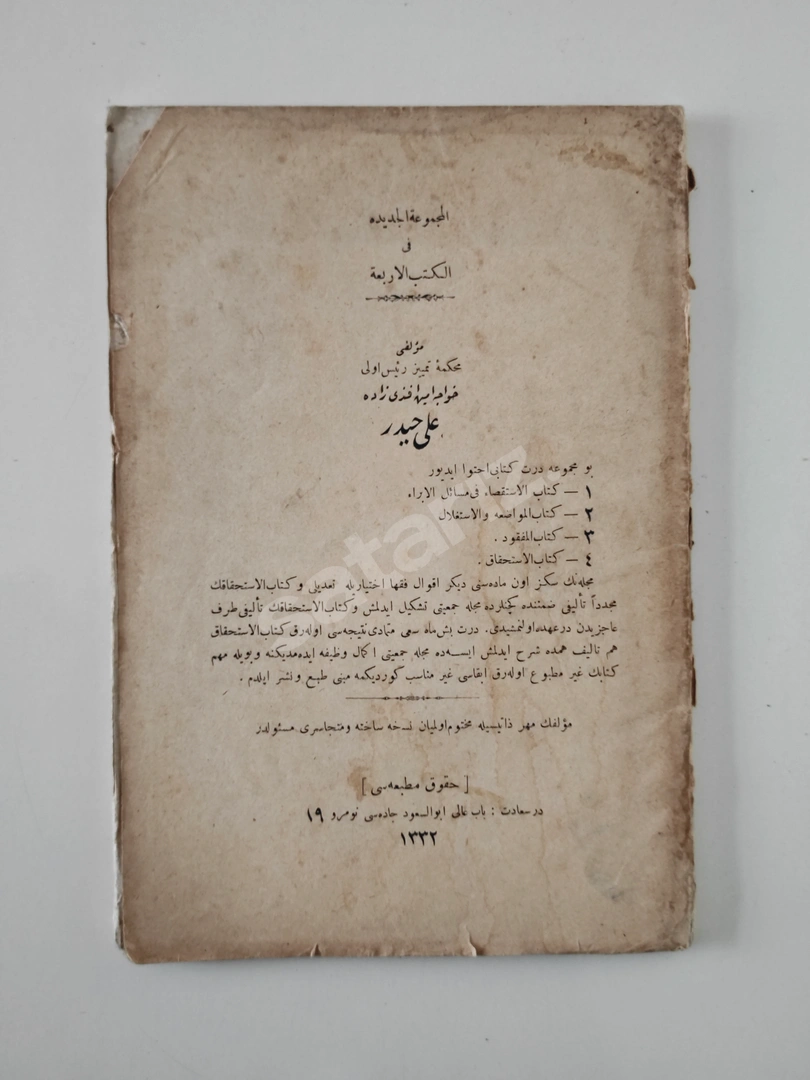 المجموعة الجديده
فى
الكتب الاربعة
مؤلفى
محكمۀ تمييز رئيس اولى
خواجه امين افندى زاده
على حيدر
بو مجموعه درت كتابى احتوا ايديور
١ — كتاب الاستقصاء فى مسائل الابراء
٢ — كتاب المواضعه والاستغلال
٣ — كتاب المفقود .
٤ — كتاب الاستحقاق .
مجله نك سكز اون ماده سنى ديكر اقوال فقها اختياريله تعديلى و كتاب الاستحقاقك
مجدداً تأليفى ضمننده كچنلرده مجله جمعيتى تشكيل ايدلمش و كتاب الاستحقاقك تأليفى طرف
عاجزيدن درعهده اولنمشيدى. درت بش ماه سعى متمادى نتيجه سى اوله رق كتاب الاستحقاق
هم تأليف همده شرح ايدلمش ايسه ده مجله جمعيتى اكمال وظيفه ايده مديكنه و بويله مهم
كتابك غير مطبوع اوله رق ابقاسى غير مناسب كورديكمه مبنى طبع و نشر ايلدم .
مؤلفك مهر ذاتيسيله مختوم اولميان نسخه ساخته و متجاسرى مسئولدر
[ حقوق مطبعه سى ]
در سعادت : باب عالى ابوالسعود جاده سى نومرو ١٩
١٣٣٢